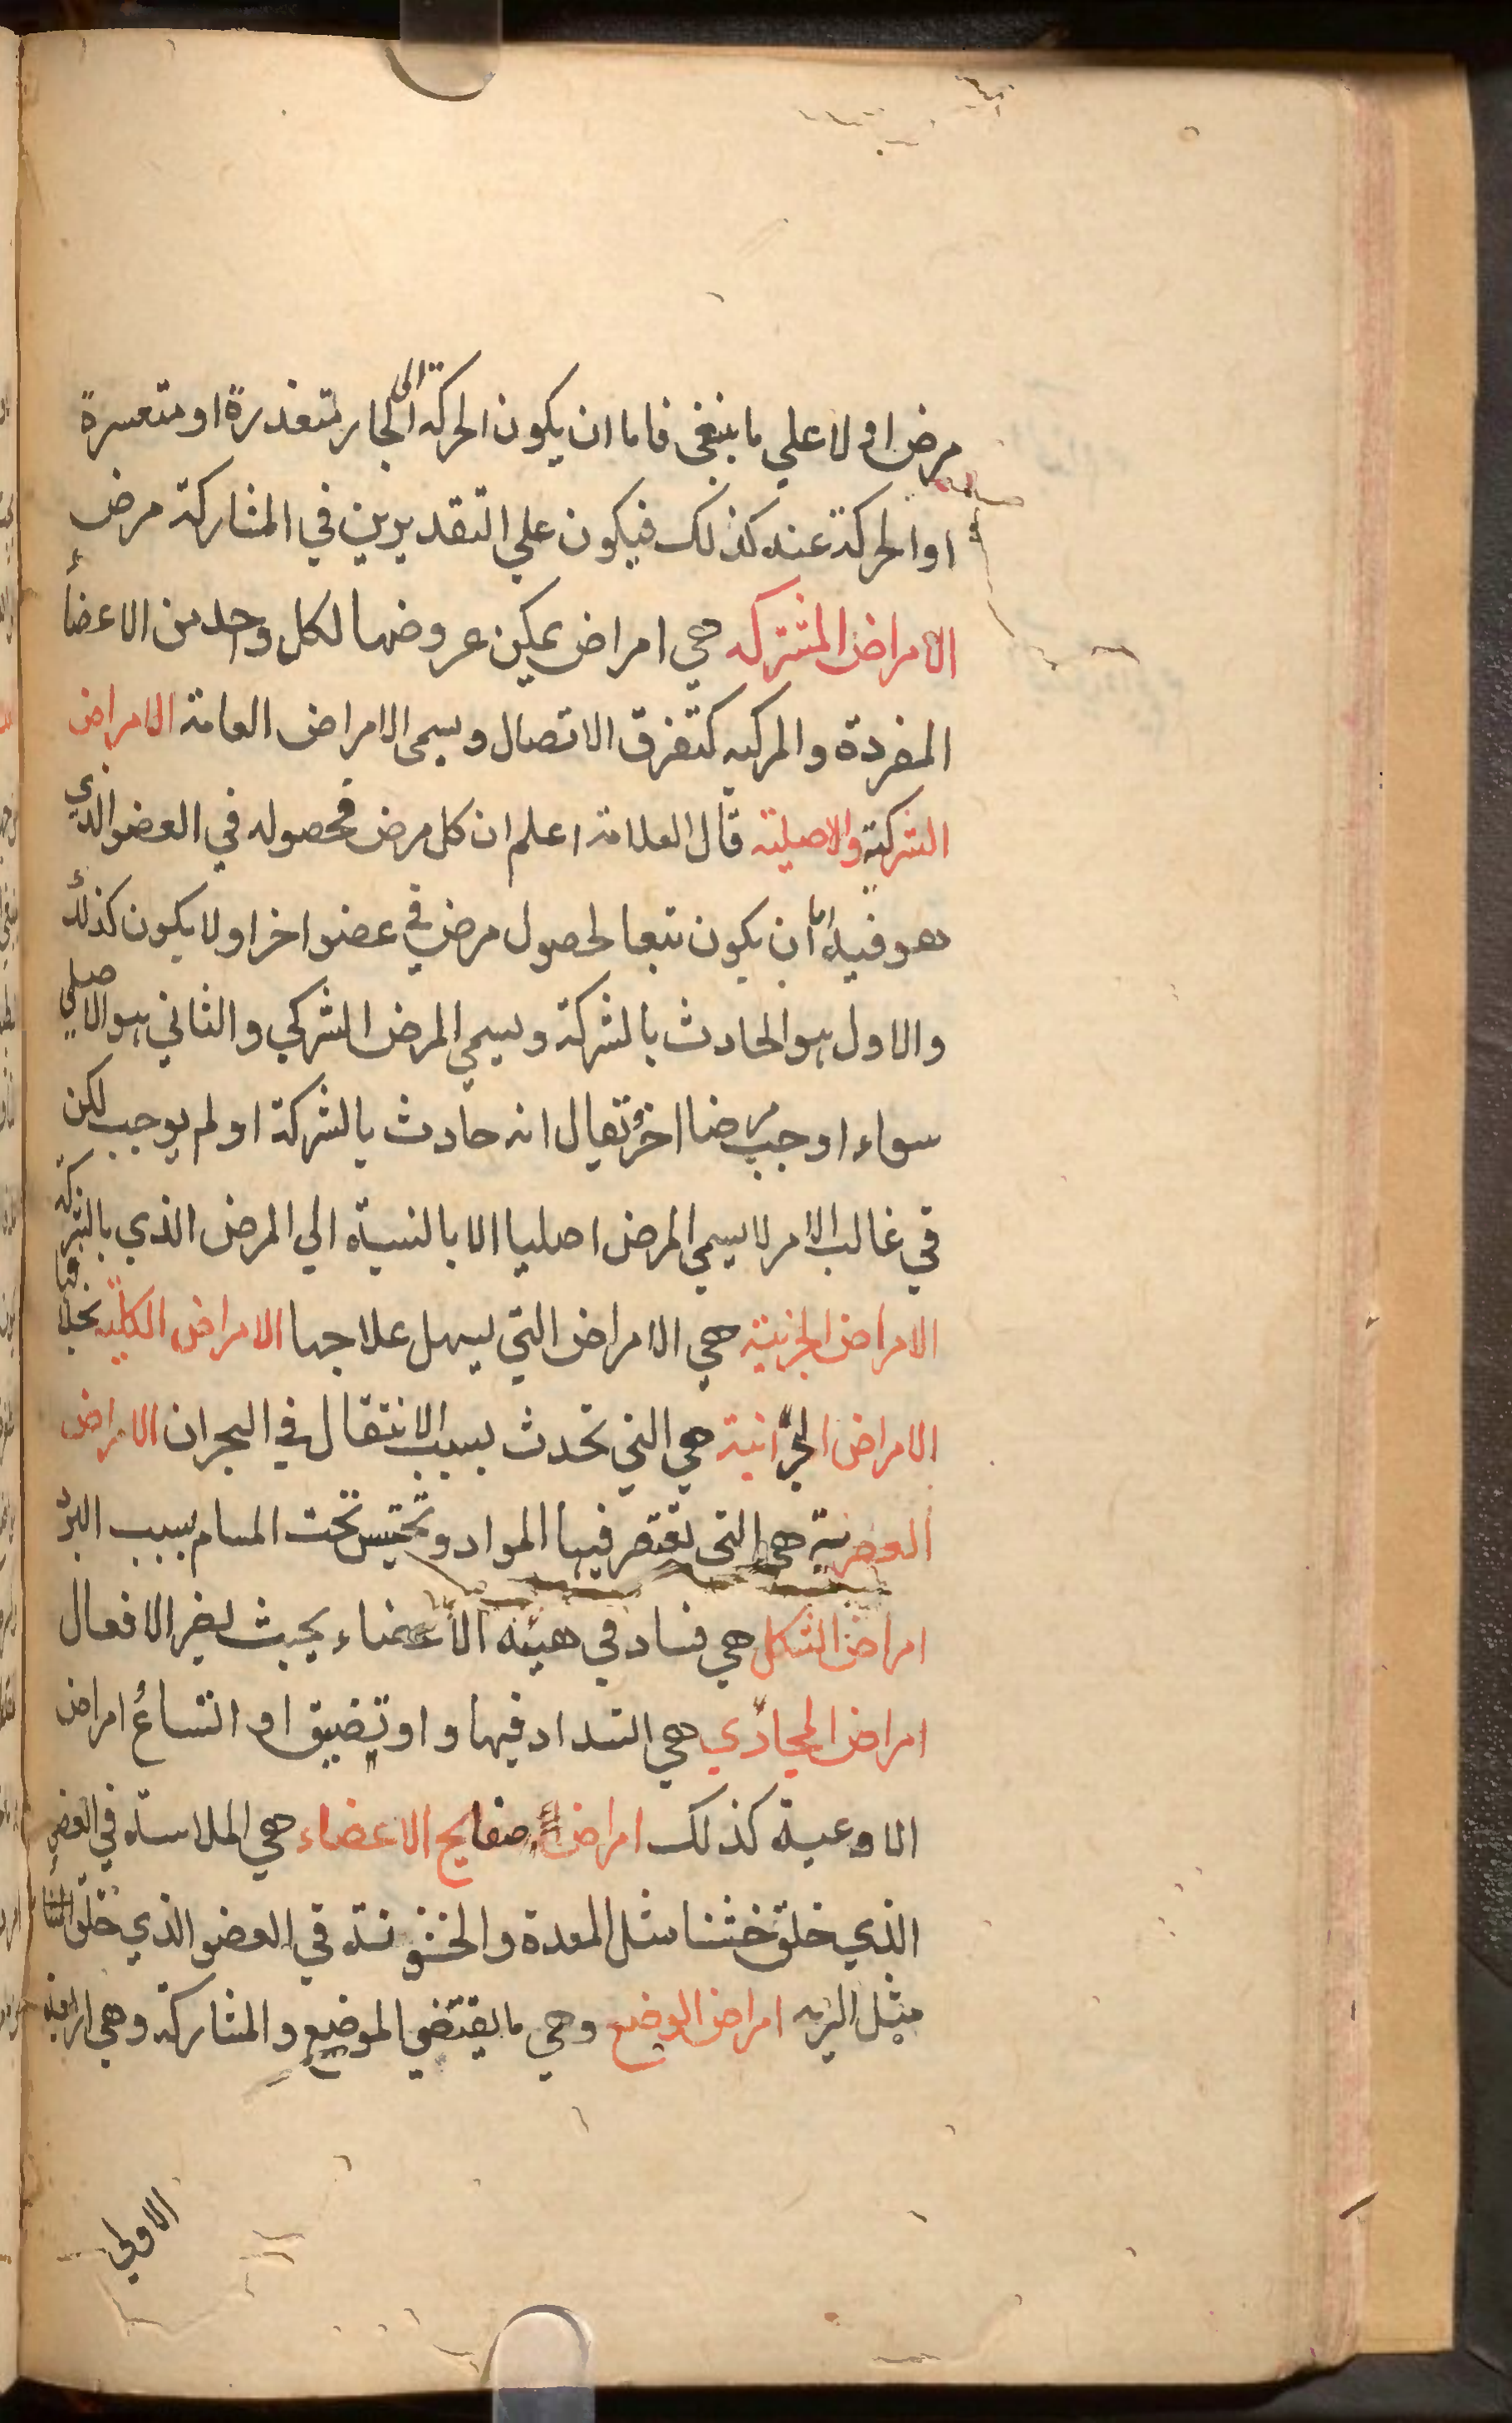 مرض اولا علي ما ينبغي فاما ان يكون الحركة الى الجار متعذرة او متعسرة
او الحركة عنه كذلك فيكون علي التقديرين في المشاركة مرض
الامراض المشتركه هي امراض يمكن عروضها لكل واحد من الاعضأ
المفردة والمركبه كتفرق الاتصال ويسمى الامراض العامة الامراض
الشركية والاصلية قال العلامة اعلم ان كل مرض فحصوله في العضو الذي
هو فيه اما ان يكون تبعا لحصول مرض في عضو اخر او لا يكون كذلك
والاول هو الحادث بالشركة ويسمي المرض الشركي والثاني هو الاصلي
سواء اوجب مرضا اخر يقال انه حادث بالشركة او لم يوجب لكن
في غالب الامر لا يسمي المرض اصليا الا بالنسبة الي المرض الذي بالشركة
الامراض الجزئية هي الامراض التي يسهل علاجها الامراض الكلية بخلافها
الامراض البحرانية هي التي تحدث بسبب الانتقال في البحران الامراض
هي التي فيها المواد وتحتبس تحت المسام بسبب البرد
امراض الشكل هي فساد في هيئة الاعضاء بحيث يضر الافعال
امراض المجاري هي انسداد فيها و او تضيق او اتساع امراض
الاوعية كذلك امراض صفايح الاعضاء هي الملاسة في العضو
الذي خلق خشنا مثل المعدة والخشونة في العضو الذي خلق
مثل الرية امراض الوضع وهي ما يقتضي الموضع والمشاركة وهي اربعة
الاولي